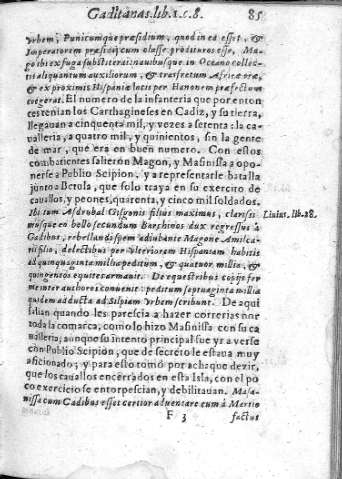 Gaditanas.lib.1.c.8. 85
vrbem, Punicumque præsidium, quod in ea esset, &
Imperatorem præsidij cum classe prodituros esse. Ma-
go ibi ex fuga substiterat: nauibusque in Oceano collec-
tis aliquantum auxiliorum, & trasfretum Africæ oræ,
& ex proximis Hispaniæ locis per Hanonem præfectum
coegerat. El numero de la infanteria que por enton
ces tenian los Carthagineses en Cadiz, y su tierra,
llegauan a cinquenta mil, y vezes a setenta: la ca-
ualleria, a quatro mil, y quinientos, sin la gente
de mar, que era en buen numero. Con estos
combatientes salieron Magon, y Masinissa a opo-
nerse a Publio Scipion, y a representarle batalla
junto a Betula, que solo traya en su exercito de
cauallos, y peones, quarenta, y cinco mil soldados.
Ibi tum Asdrubal Gisgonis filius maximus, clarissi Liuius.lib.28.
musque in bello secundum Barchinos dux regressus à
Gadibus, rebellandi spem adiubante Magone Amilca-
ris filio, delectibus per vlteriorem Hispaniam habitis
ad quinquaginta millia peditum, & quatuor millia, &
quingentos equites armauit. De equestribus copijs fer
me inter authores conuenit: peditum septuaginta millia
quidem adducta ad Silpiam vrbem scribunt. De aqui
salian quando les parescia a hazer correrias por
toda la comarca, como lo hizo Masinissa con su ca
ualleria; aunque su intento principal fue yr a verse
con Publio Scipion, que de secreto le estaua muy
aficionado; y para esto tomó por achaque dezir,
que los cauallos encerrados en esta Isla, con el po
co exercicio se entorpescian, y debilitauan. Masi-
nissa cum Gadibus esset certior aduentare eum à Martio
F 3 factus